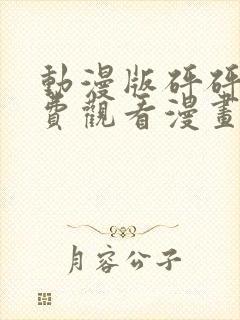 動漫版砰砰
費觀看漫畫
月容公子